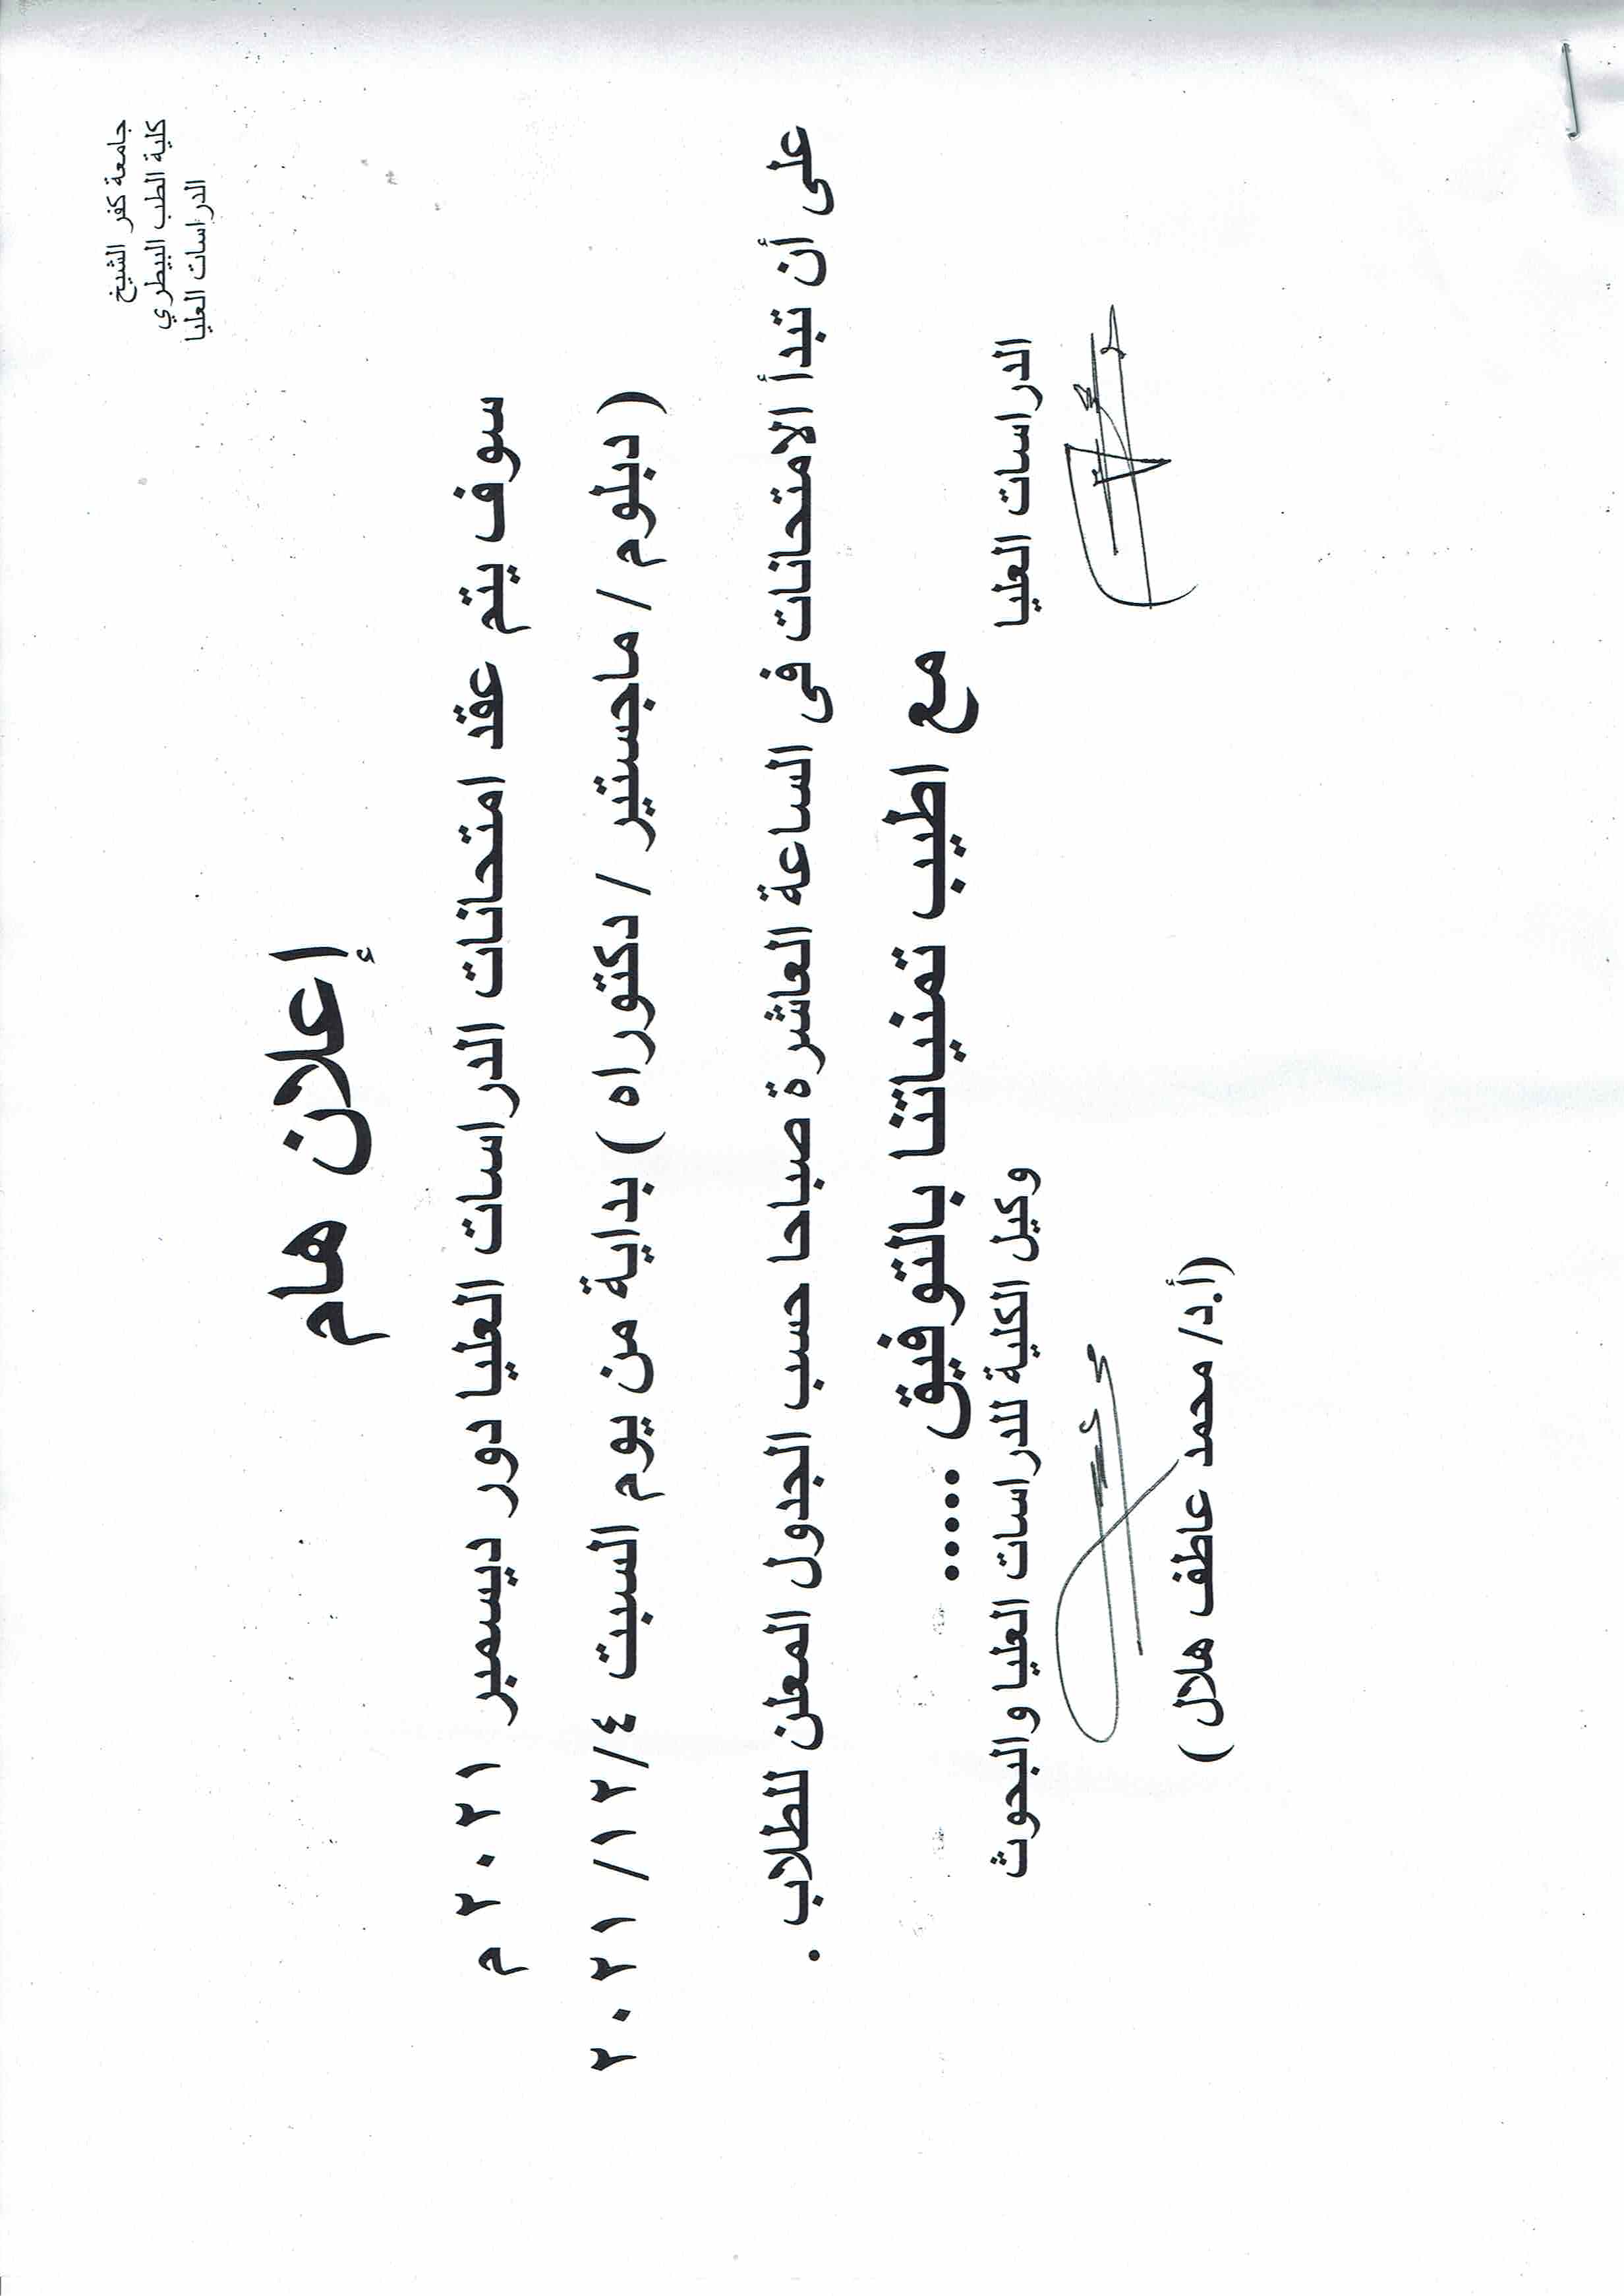 جامعة كفر الشيخ
كلية الطب البيطري
الدراسات العليا
إعلان هام
سوف يتم عقد امتحانات الدراسات العليا دور ديسمبر ٢٠٢١ م
( دبلوم / ماجستير / دكتوراه ) بداية من يوم السبت ٤/١٢/ ٢٠٢١
على أن تبدأ الامتحانات فى الساعة العاشرة صباحا حسب الجدول المعلن للطلاب .
مع اطيب تمنياتنا بالتوفيق ......
الدراسات العليا
وكيل الكلية للدراسات العليا والبحوث
(أ.د/ محمد عاطف هلال )